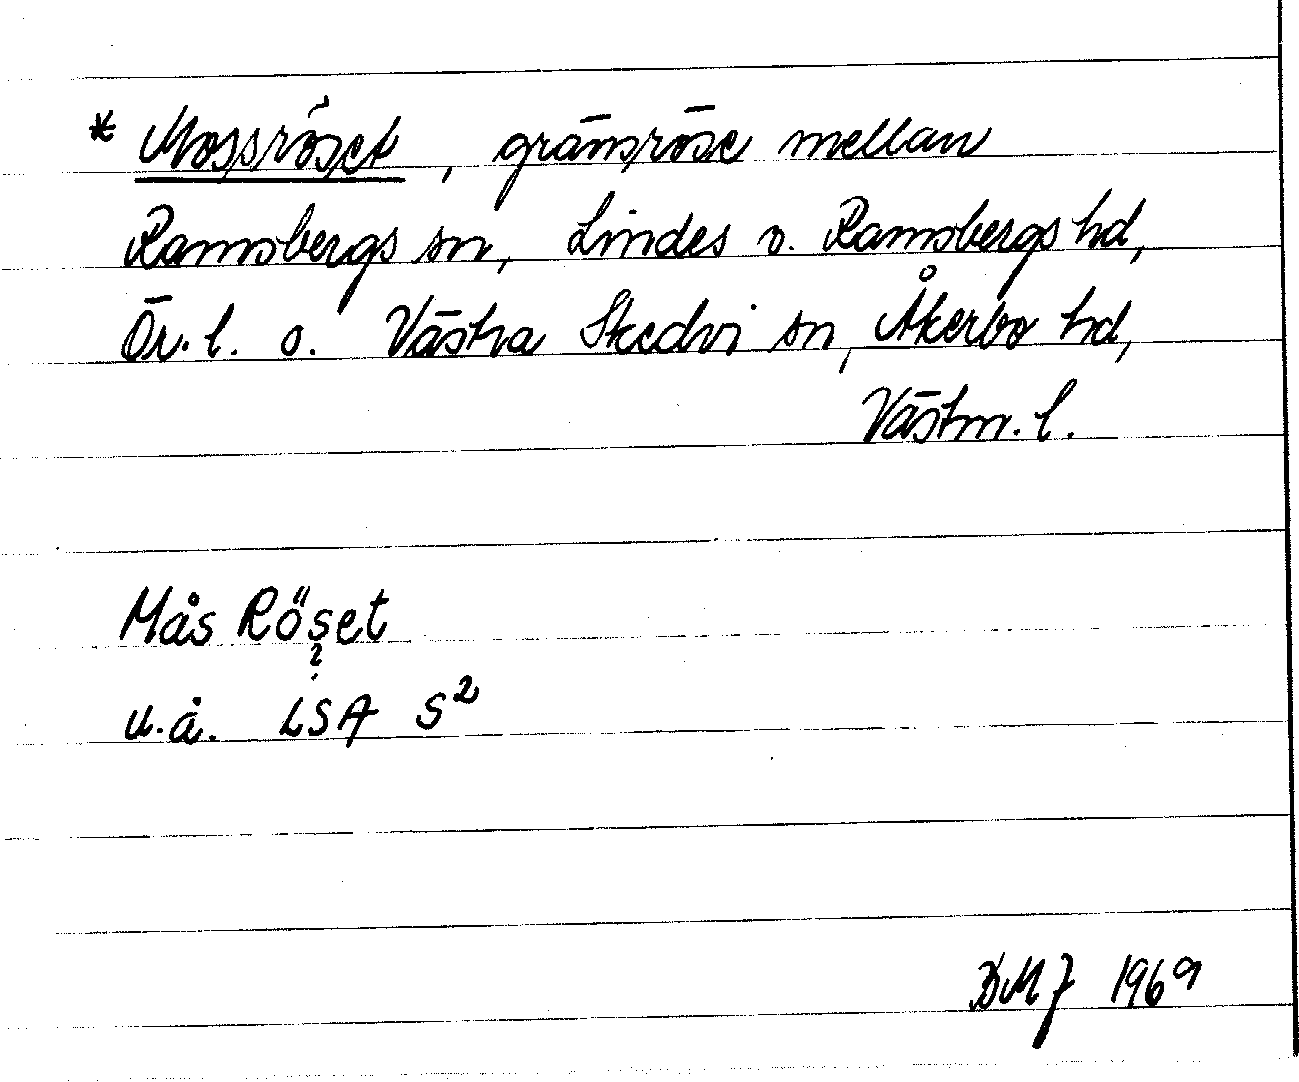 * Mossröset, gränsröse mellan
Ramsbergs sn, Lindes o. Ramsbergs hd,
Ör. l. o. Västra Skedvi sn, Åkerbo hd,
Västm. l.
Mås Röset
?
u.å. LSA S²
DMJ 1969